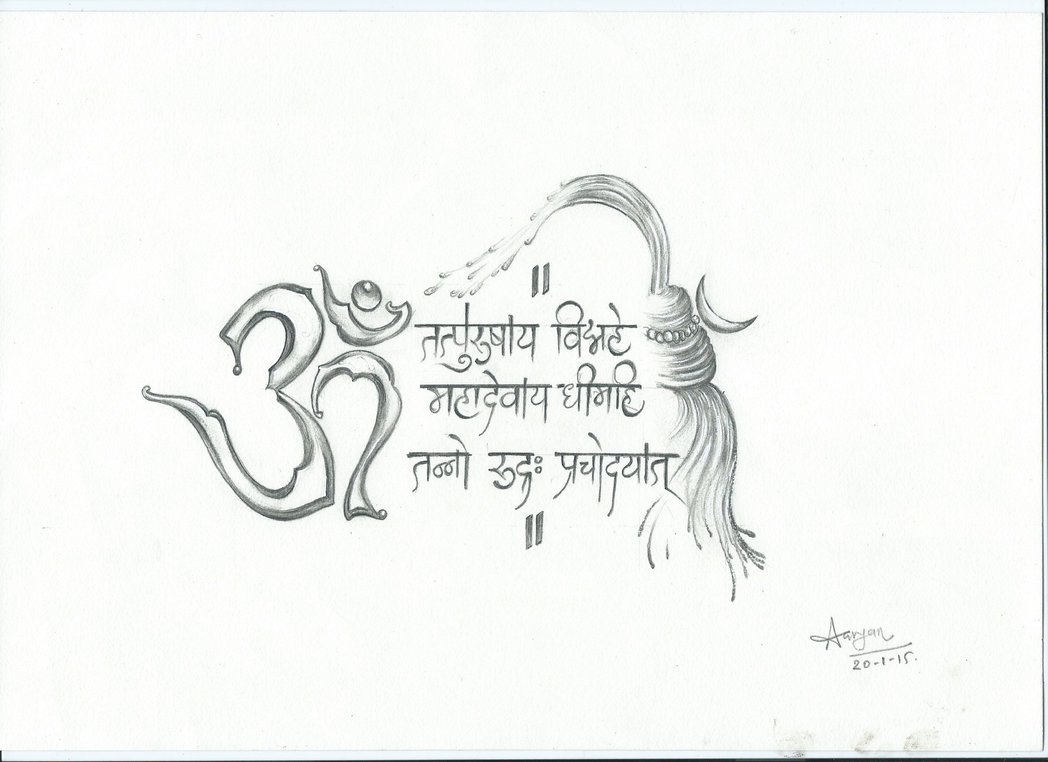 ॐ
॥
तत्पुरुषाय विद्महे
महादेवाय धीमहि
तन्नो रुद्रः प्रचोदयात्
॥
Aaryan
20-1-15.